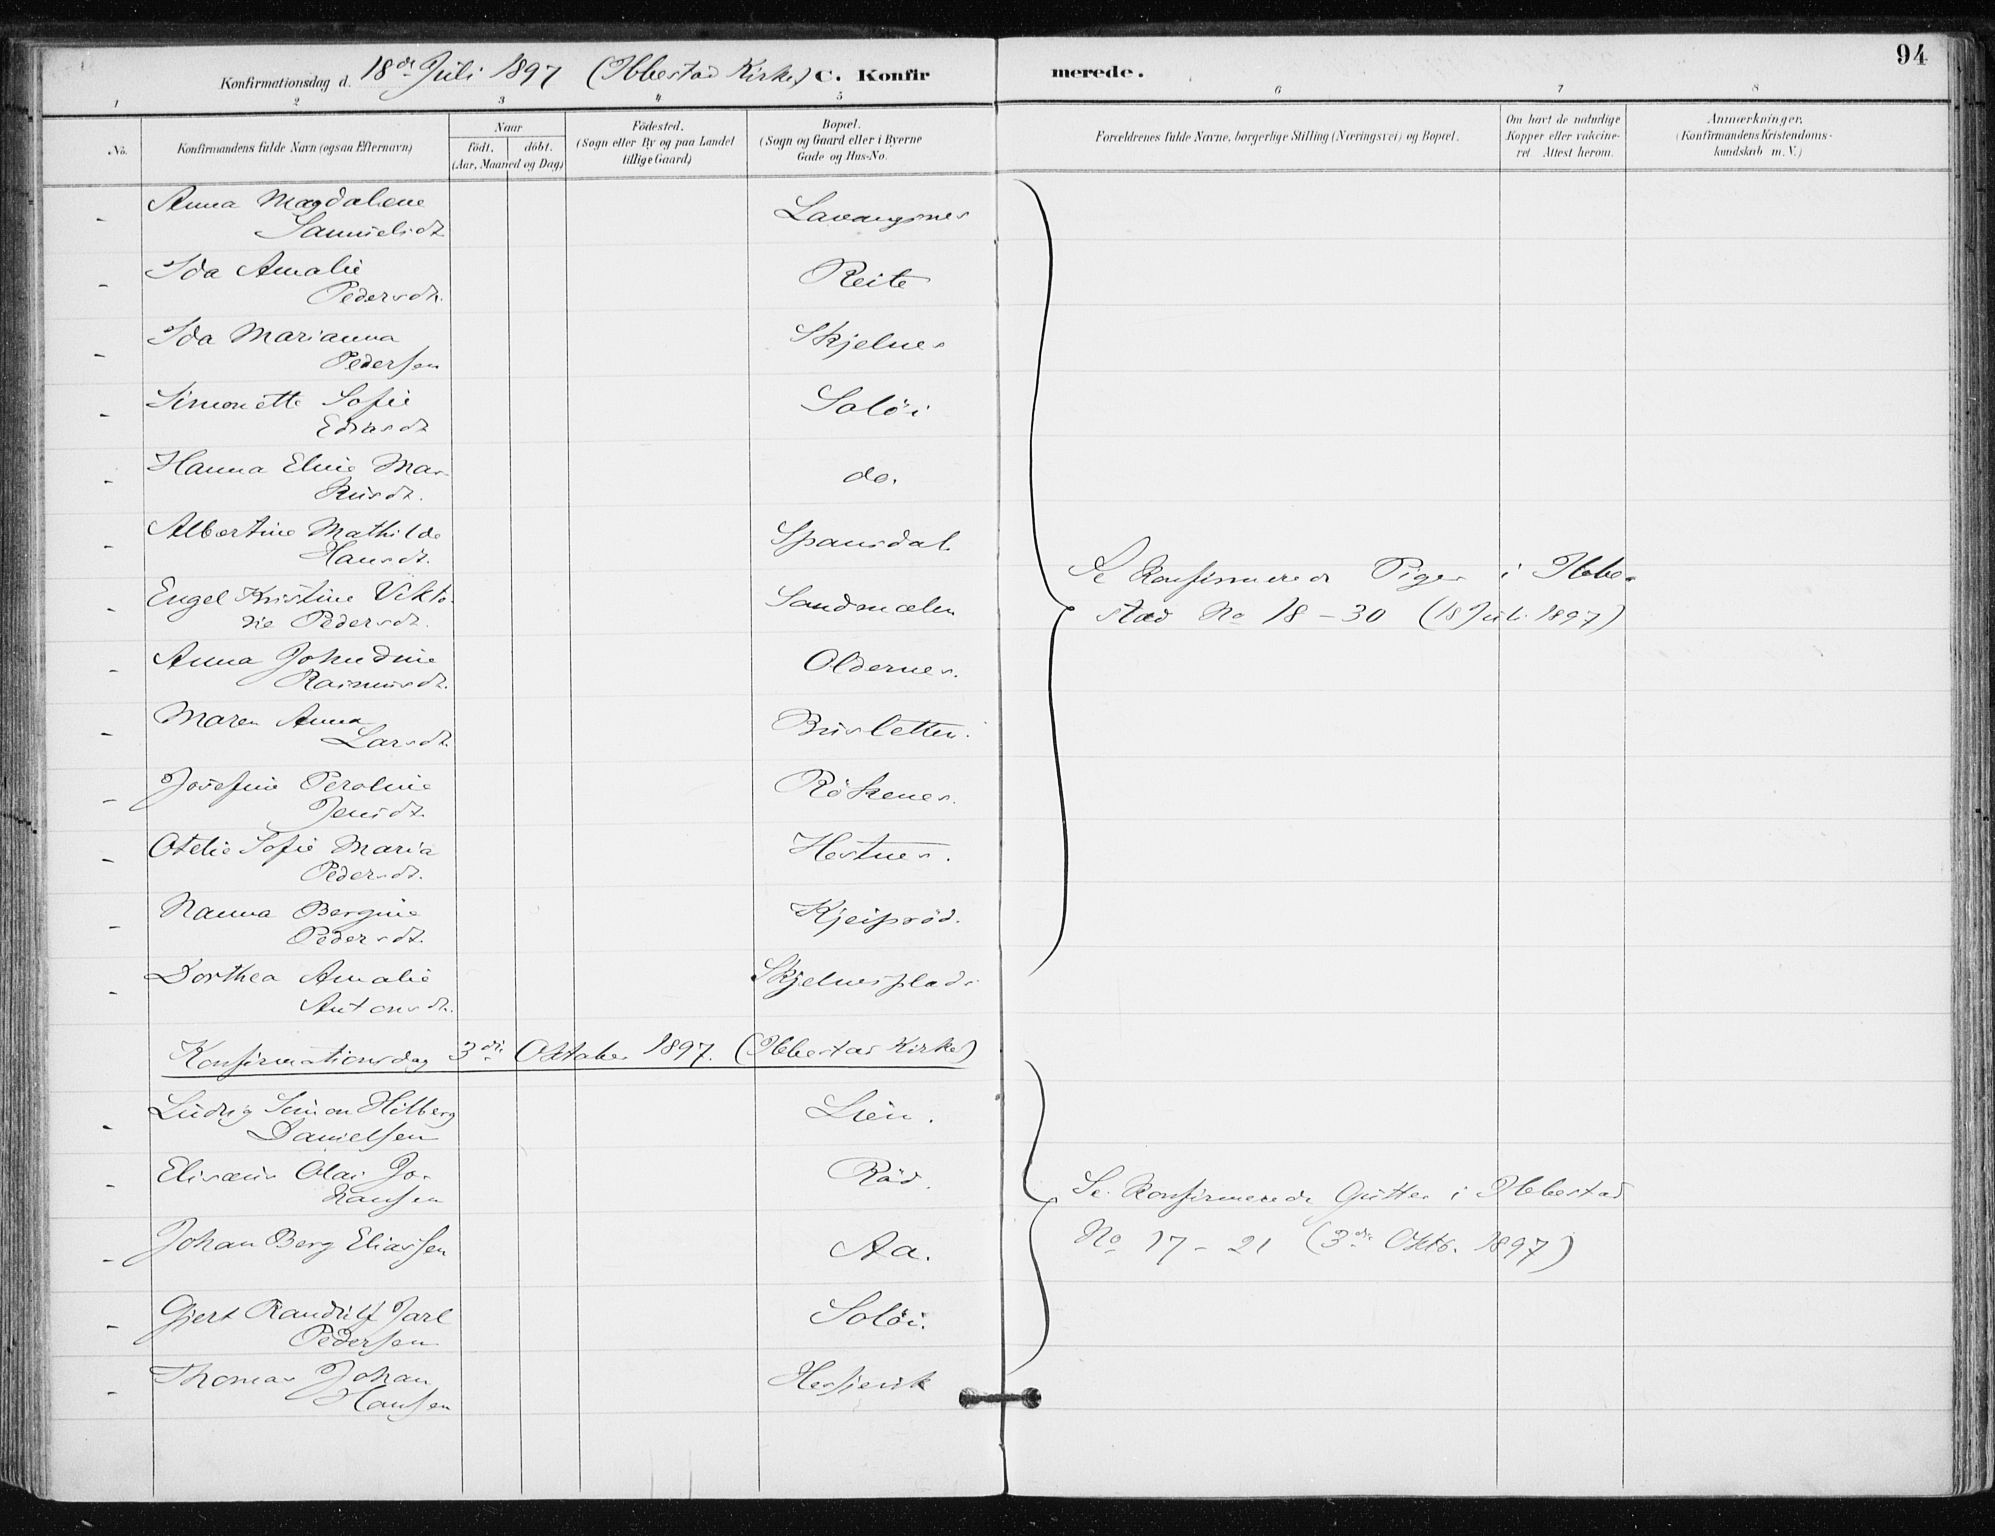 94
Konfirmationsdag d. 18de Juli 1897 (Ibbestad Kirke) C. Konfirmerede.
1 2 3 4 5 6 7 8
No. Konfirmandens fulde Navn (ogsaa Efternavn) Naar födt. döbt. (Aar, Maaned og Dag) Födested. (Sogn eller By og paa Landet tillige Gaard) Bopæl. (Sogn og Gaard eller i Byerne Gade og Hus-No. Forældrenes fulde Navne, borgerlige Stilling (Næringsvei) og Bopæl. Om havt de naturlige Kopper eller vakcineret. Attest herom. Anmærkninger. (Konfirmandens Kristendomskundskab m. V.)
- Anna Magdalene Lavangsnes
Samuelsdt.
- Ida Amalie Reite
Pedersdt.
- Ida Marianna Skjelnes
Pedersen
- Simonette Sofie Solöi
Edvardsdt
- Hanna Eline Mar- do.
kusdt.
- Albertine Mathilde Spansdal
Hansdt.
- Engel Kristine Vikto- Sandmælen
rie Pedersdt.
Se konfirmerede Piger i Ibbe-
stad No 18-30 (18 Juli 1897)
- Anna Johndine Oldernes.
Rasmusdt.
- Maren Anna Brusletten.
Larsdt.
- Josefine Peroline Rökenes.
Jensdt.
- Otelie Sofie Maria Hestnes.
Pedersdt.
- Nanna Bergine Kjeipröd.
Pedersdt.
- Dorthea Amalie Skjelnesplads
Antonsdt.
Konfirmationsdag 3die Oktober 1897. (Ibbestad Kirke)
- Ludvig Simon Hilberg Lien.
Danielsen
- Elisæus Olai Jo- Röd.
hansen
Se konfirmerede Gutter i Ibbestad
No 17-21 (3die Oktb. 1897)
- Johan Berg Eliassen Aa.
- Gjert Randulf Jarl Solöi.
Pedersen
- Thomas Johan Hesjevik
Hansen